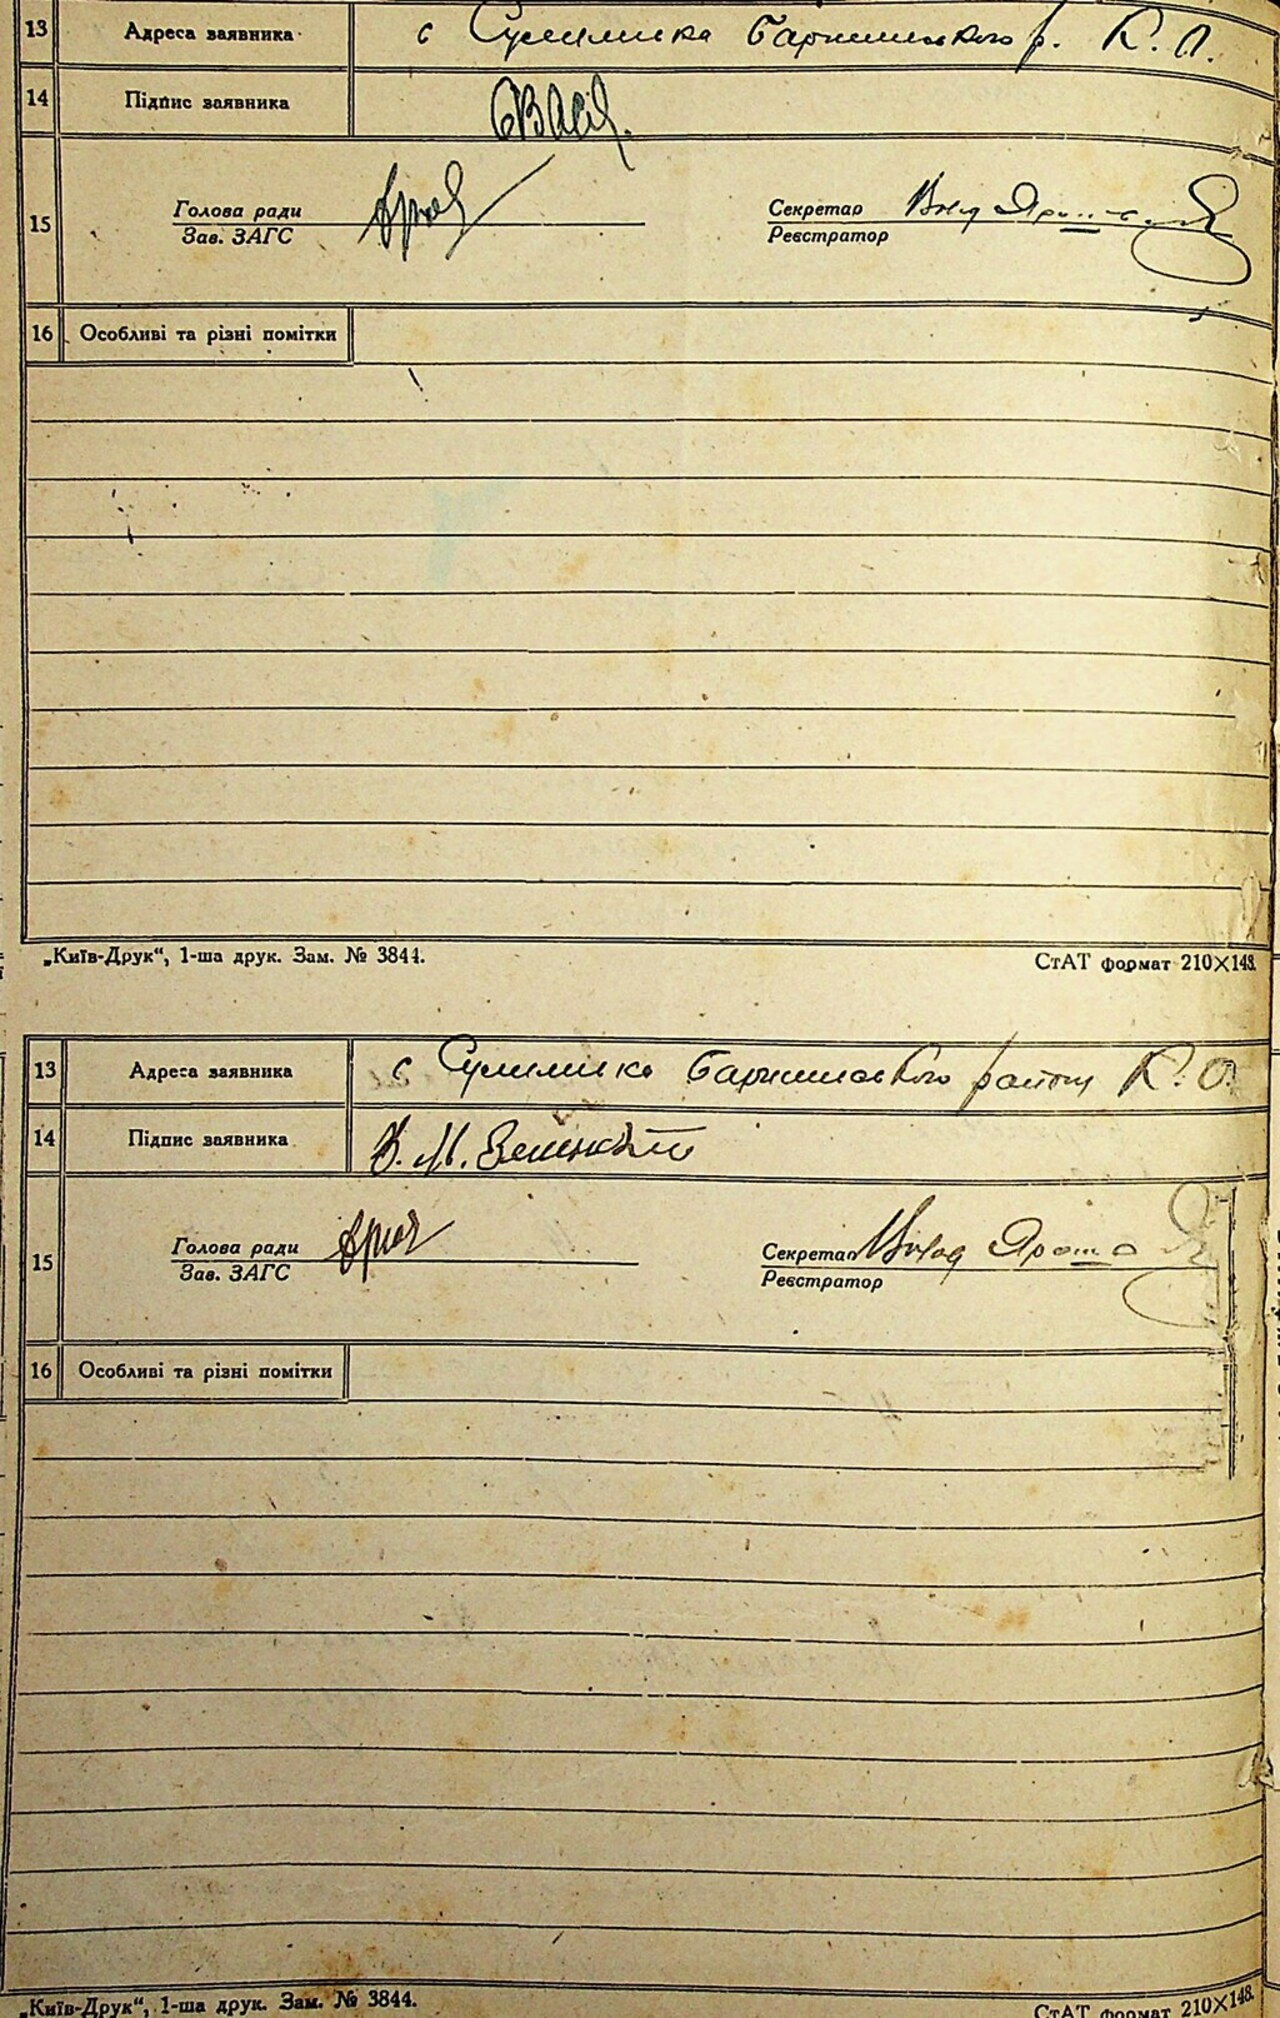 13 Адреса заявника с Сулимівка Баришівського р. К. О.
14 Підпис заявника
Голова ради Секретар
15
Зав. ЗАГС Реєстратор
16 Особливі та різні помітки
„Київ-Друк“, 1-ша друк. Зам. № 3844. СтАТ формат 210×148.
13 Адреса заявника с Сулимівка Баришівського району К. О.
14 Підпис заявника
Голова ради Секретар
15
Зав. ЗАГС Реєстратор
16 Особливі та різні помітки
„Київ-Друк“, 1-ша друк. Зам. № 3844. СтАТ формат 210×148.